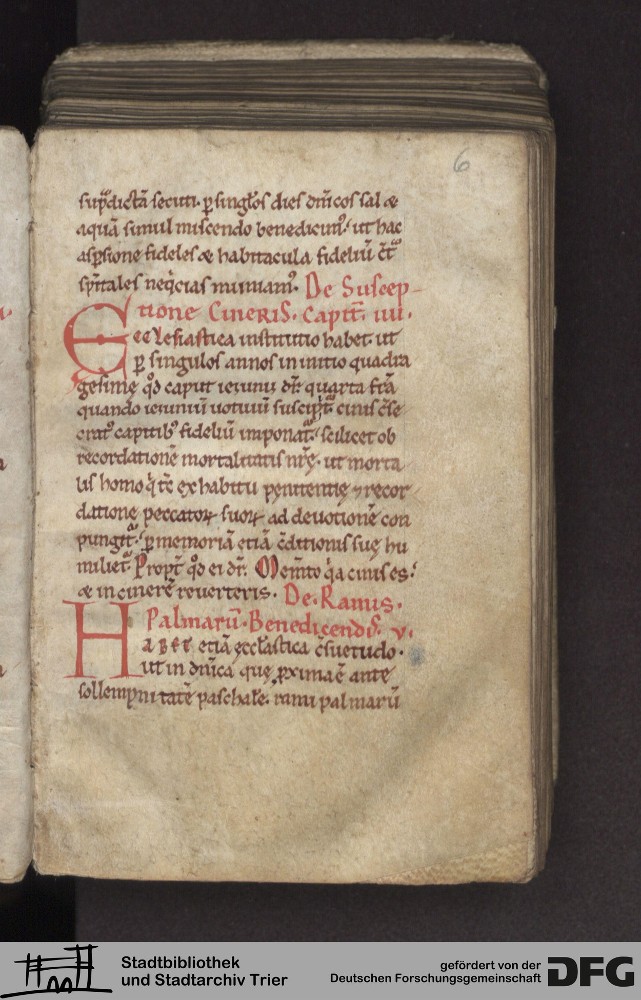 6
sup̃dictã secuti. ꝑ singl̃os dies dñicos sal &
aquã simul miscendo benedicimꝰ. ut hac
aspsione fideles & habitacula fideliũ c̃tᷓ
sp̃itales neq̇cias muniamꝰ. De Suscep-
tione Cineris. Capit̃. iiii.
Ecclesiastica institutio habet. ut
ꝑ singulos annos in initio quadra
gesimę qd̃ caput ieiunii dr̃. quarta fr̃a
quando ieiuniũ uotiuũ suscipit̃. cinis c̃se
cratꝰ capitibꝰ fideliũ imponat̃. scilicet ob
recordationẽ mortalitatis nr̃ę. ut morta
lis homo q̇ tc̃ ex habitu penitentię ⁊ recor
datione peccatoꝝ suoꝝ ad deuotionẽ con
pungit̃. ꝑ memoriã etiã c̃ditionis suę hu
miliet̃. Propt̃ qd̃ ei dr̃. Mem̃to q̇a cinis es.
& in cinerẽ reuerteris. De Ramis.
Palmarũ. Benedicendis. v.
Habet etiã ęccl̃astica c̃suetudo.
ut in dñica quę ꝓxima ẽ ante
sollempnitatẽ paschalẽ. rami palmarũ
Stadtbibliothek
und Stadtarchiv Trier
gefördert von der
Deutschen Forschungsgemeinschaft
DFG